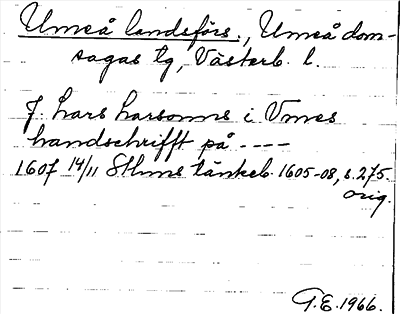 Umeå landsförs., Umeå dom-
sagas tg, Västerb. l.
J. Lars Larsonns i Vmes
handschrifft på ----
1607 14/11 Sthms tänkeb. 1605-08, s. 275.
orig.
G.E. 1966.